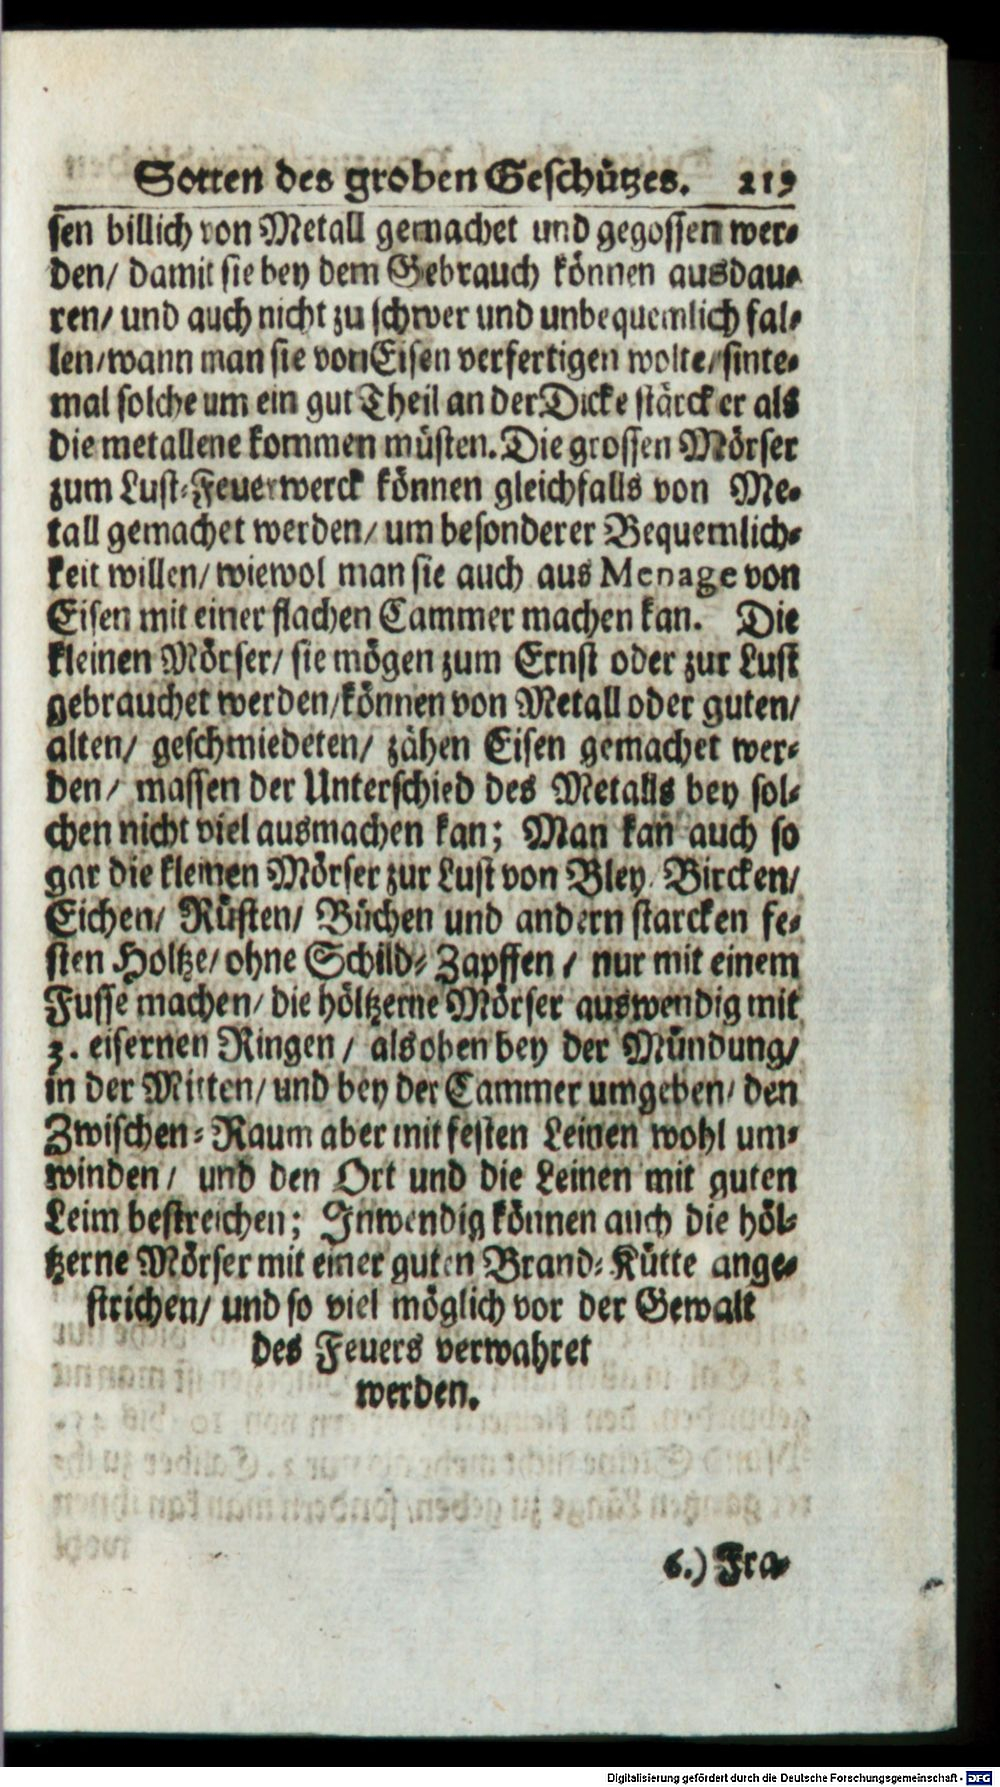 Sotten des groben Geschützes. 219
sen billich von Metall gemachet und gegossen wer-
den/ damit sie bey dem Gebrauch können ausdau-
ren/ und auch nicht zu schwer und unbequemlich fal-
len/wann man sie von Eisen verfertigen wolte/sinte-
mal solche um ein gut Theil an der Dicke stärcker als
die metallene kommen müsten. Die grossen Mörser
zum Lust-Feuerwerck können gleichfalls von Me-
tall gemachet werden/ um besonderer Bequemlich-
keit willen/ wiewol man sie auch aus Menage von
Eisen mit einer flachen Cammer machen kan. Die
kleinen Mörser/ sie mögen zum Ernst oder zur Lust
gebrauchet werden/können von Metall oder guten/
alten/ geschmiedeten/ zähen Eisen gemachet wer-
den/ massen der Unterschied des Metalls bey sol-
chen nicht viel ausmachen kan; Man kan auch so
gar die kleinen Mörser zur Lust von Bley/ Bircken/
Eichen/ Rüsten/ Büchen und andern starcken fe-
sten Holtze/ ohne Schild-Zapffen/ nur mit einem
Fusse machen/ die höltzerne Mörser auswendig mit
3. eisernen Ringen/ als oben bey der Mündung/
in der Mitten/ und bey der Cammer umgeben/ den
Zwischen-Raum aber mit festen Leinen wohl um-
winden/ und den Ort und die Leinen mit guten
Leim bestreichen; Inwendig können auch die höl-
tzerne Mörser mit einer guten Brand-Kütte ange-
strichen/ und so viel möglich vor der Gewalt
des Feuers verwahret
werden.
6.) Fra-
Digitalisierung gefördert durch die Deutsche Forschungsgemeinschaft - DFG